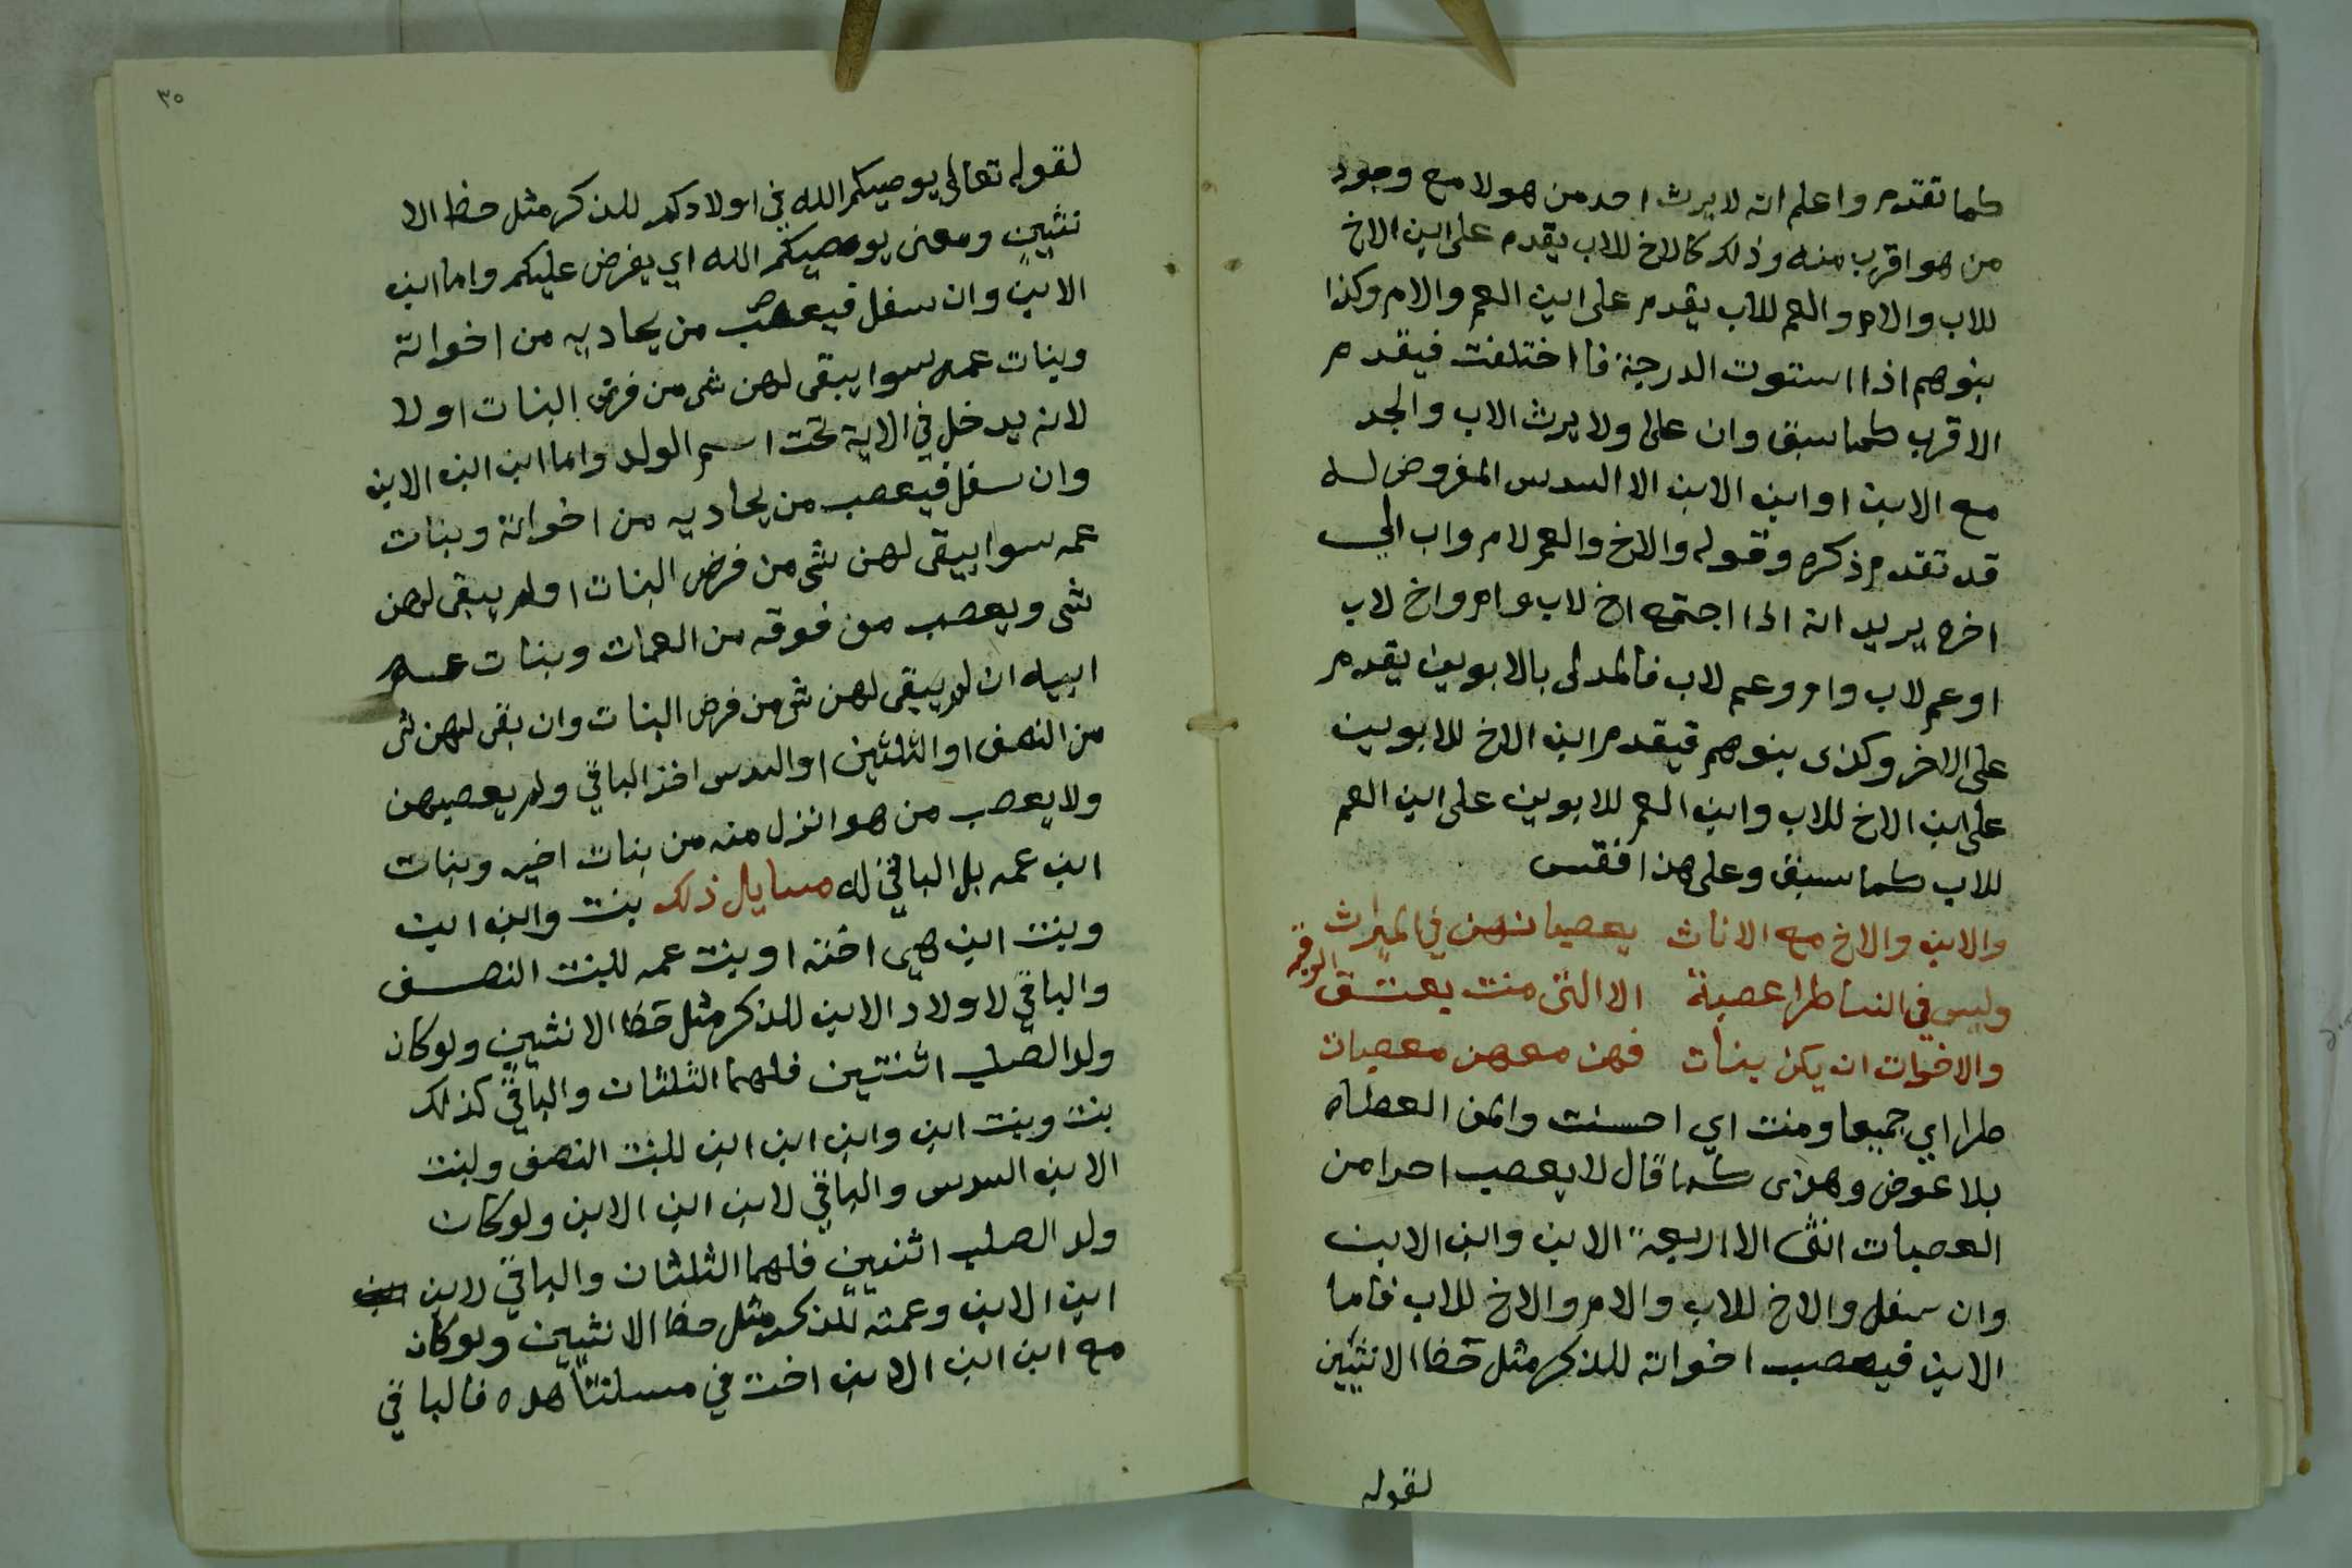 كما تقدم واعلم انه لا يرث احد من هولا مع وجود
من هو اقرب منه وذلك كالاخ للاب يقدم على ابن الاخ
للاب والام والعم للاب يقدم على ابن العم والام وكذا
بنوهم اذا استوت الدرجة فا اختلفت فيقدم
الاقرب كما سبق وان علا ولا يرث الاب والجد
مع الابن او ابن الابن الا السدس المفروض له
قد تقدم ذكره وقوله والاخ والعم لام واب الي
اخره يريد انه اذا اجتمع اخ لاب وام واخ لاب
او عم لاب وام وعم لاب فالمدلى بالابوين يقدم
على الاخر وكذى بنوهم فيقدم ابن الاخ للابوين
على ابن الاخ للاب وابن العم للابوين على ابن العم
للاب كما سبق وعلى هذا فقس
والابن والاخ مع الاناث يعصبانهن في الميراث
وليس في النسا طرا عصبة الا التى منت بعتق الرقبه
والاخوات ان يكن بنات فهن معهن معصبات
طرا اي جميعا ومنت اي احسنت والمن العطاه
بلا عوض وهذى كما قال لا يعصب احدا من
العصبات انثى الا اربعة الابن وابن الابن
وان سفل والاخ للاب والام والاخ للاب فاما
الابن فيعصب اخواته للذكر مثل حظ الانثيين
لقوله
٣٥
لقوله تعالى يوصيكم الله في اولادكم للذكر مثل حظ الا
نثيين ومعنى يوصيكم الله اي يفرض عليكم واما ابن
الابن وان سفل فيعصب من يحاديه من اخواته
وبنات عمه سوا يبقى لهن شى من فرض البنات او لا
لانه يدخل في الاية تحت اسم الولد واما ابن ابن الابن
وان سفل فيعصب من يحاديه من اخواته وبنات
عمه سوا يبقى لهن شى من فرض البنات او لم يبقى لهن
شى ويعصب من فوقه من العمات وبنات عم
ابيه ان لم يبقى لهن شى من فرض البنات وان بقى لهن شى
من النصف او الثلثين او السدس اخذ الباقي ولم يعصبهن
ولا يعصب من هو انزل منه من بنات اخيه وبنات
ابن عمه بل الباقي له مسايل ذلك بنت وابن ابن
وبنت ابن هي اخته او بنت عمه للبنت النصف
والباقي لاولاد الابن للذكر مثل حظ الانثيين ولو كان
ولد الصلب اثنتين فلهما الثلثان والباقي كذلك
بنت وبنت ابن وابن ابن ابن للبنت النصف ولبنت
الابن السدس والباقي لابن ابن الابن ولو كان
ولد الصلب اثنيين فلهما الثلثان والباقي لابن
ابن الابن وعمته للذكر مثل حظ الانثيين ولو كان
مع ابن ابن الابن اخت في مسلتنا هده فالباقي